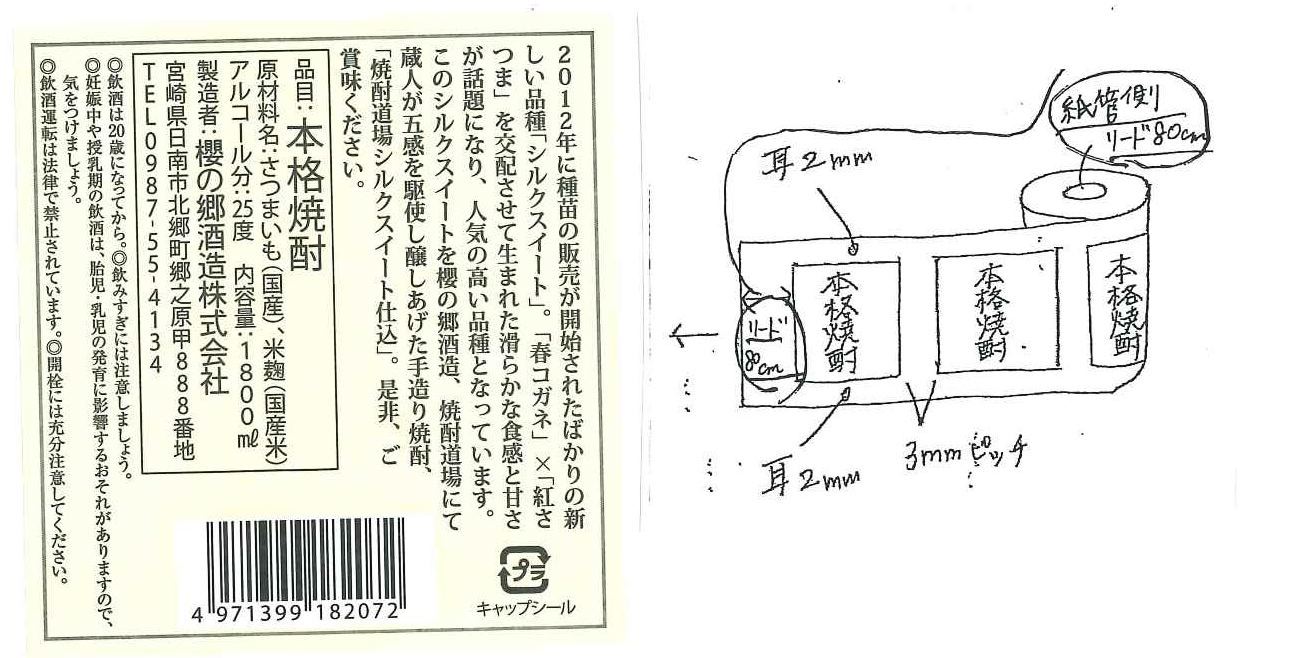 2012年に種苗の販売が開始されたばかりの新
しい品種「シルクスイート」。「春コガネ」×「紅さ
つま」を交配させて生まれた滑らかな食感と甘さ
が話題になり、人気の高い品種となっています。
このシルクスイートを櫻の郷酒造、焼酎道場にて
蔵人が五感を駆使し醸しあげた手造り焼酎、
「焼酎道場シルクスイート仕込」。是非、ご
賞味ください。
品目：本格焼酎
原材料名：さつまいも（国産）、米麹（国産米）
アルコール分：25度　内容量：1800㎖
製造者：櫻の郷酒造株式会社
宮崎県日南市北郷町郷之原甲888番地
TEL0987-55-4134
◎飲酒は20歳になってから。◎飲みすぎには注意しましょう。
◎妊娠中や授乳期の飲酒は、胎児・乳児の発育に影響するおそれがありますので、
気をつけましょう。
◎飲酒運転は法律で禁止されています。◎開栓には充分注意してください。
4 971399 182072
プラ
キャップシール
紙管側
リード80cm
耳2mm
本格焼酎
本格焼酎
本格焼酎
リード
80cm
耳2mm
3mmピッチ